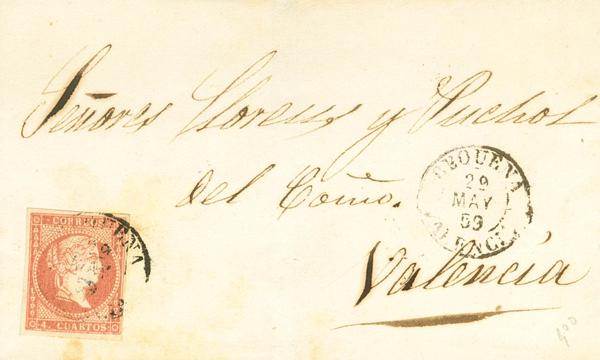 Señores Llorens y Puchol
del Comº.
Valencia
REQUENA
29
MAY
59
VALENCIA
CORREOS
REQUENA
4. CUARTOS
400